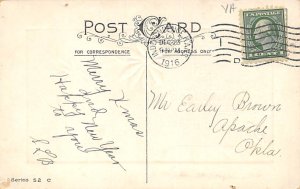 VA
POST CARD
FOR CORRESPONDENCE
FOR ADDRESS ONLY
DEC 23
1916
Merry Xmas
and
Happy New Year
to you
Mr Earley Brown
Apache
Okla.
Series 52 C